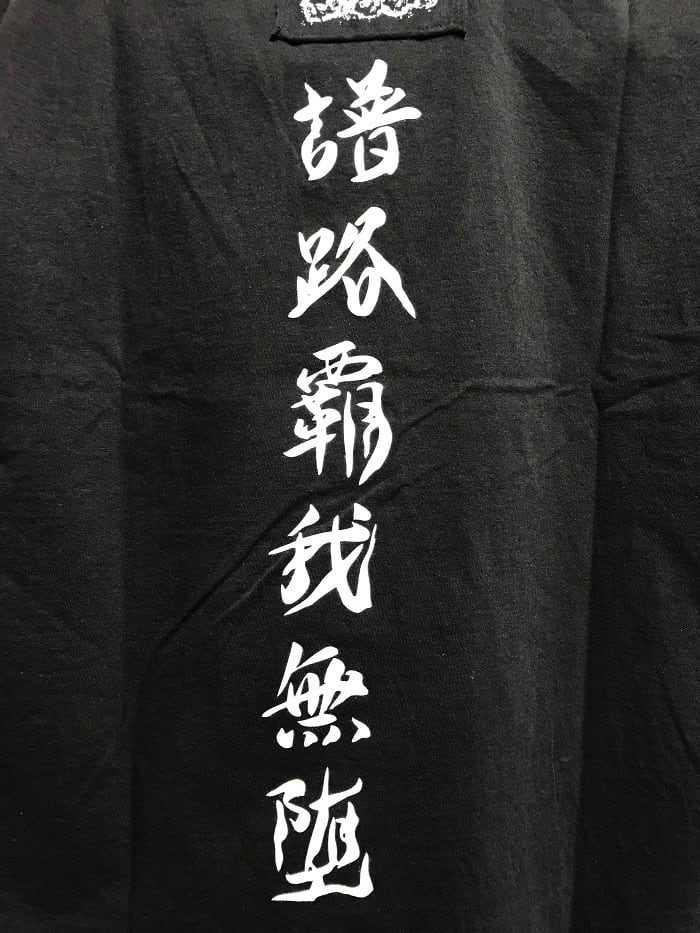 譜路覇我無堕